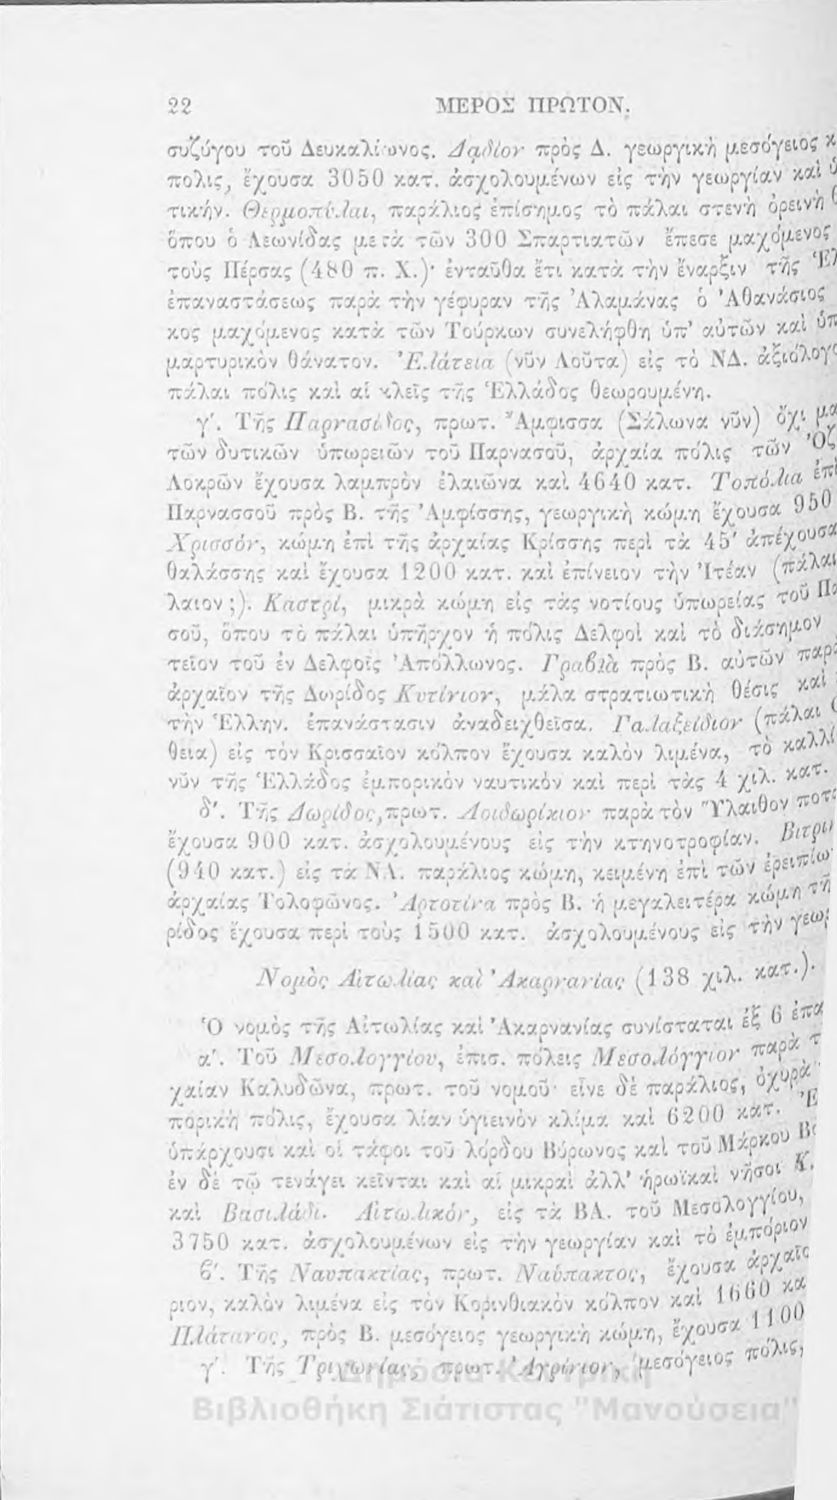 22 ΜΕΡΟΣ ΠΡΩΤΟΝ.
συζύγου τοῦ Δευκαλίωνος. Δαδίον πρὸς Δ. γεωργικὴ μεσόγειος κ
πολις, ἔχουσα 3050 κατ. ἀσχολουμένων εἰς τὴν γεωργίαν καὶ
τικήν. Θερμοπύλαι, παράλιος ἐπίσημος τὸ πάλαι στενὴ ὀρεινὴ
ὅπου ὁ Λεωνίδας μετὰ τῶν 300 Σπαρτιατῶν ἔπεσε μαχόμενος
τοὺς Πέρσας (480 π. Χ.)· ἐνταῦθα ἔτι κατὰ τὴν ἔναρξιν τῆς Ἑλ
ἐπαναστάσεως παρὰ τὴν γέφυραν τῆς Ἀλαμάνας ὁ Ἀθανάσιος
κος μαχόμενος κατὰ τῶν Τούρκων συνελήφθη ὑπ' αὐτῶν καὶ ὑπ
μαρτυρικὸν θάνατον. Ἐλάτεια (νῦν Λοῦτα) εἰς τὸ ΝΔ. ἀξιόλογ
πάλαι πόλις καὶ αἱ κλεῖς τῆς Ἑλλάδος θεωρουμένη.
γ'. Τῆς Παρνασίδος, πρωτ. Ἄμφισσα (Σάλωνα νῦν) ὄχι μα
τῶν δυτικῶν ὑπωρειῶν τοῦ Παρνασοῦ, ἀρχαία πόλις τῶν Ὀζ
Λοκρῶν ἔχουσα λαμπρὸν ἐλαιῶνα καὶ 4640 κατ. Τοπόλια ἐπὶ
Παρνασσοῦ πρὸς Β. τῆς Ἀμφίσσης, γεωργικὴ κώμη ἔχουσα 950
Χρισσόν, κώμη ἐπὶ τῆς ἀρχαίας Κρίσσης περὶ τὰ 45' ἀπέχουσα
θαλάσσης καὶ ἔχουσα 1200 κατ. καὶ ἐπίνειον τὴν Ἰτέαν (πάλαι
λαιον ;). Καστρί, μικρὰ κώμη εἰς τὰς νοτίους ὑπωρείας τοῦ Πα
σοῦ, ὅπου τὸ πάλαι ὑπῆρχον ἡ πόλις Δελφοὶ καὶ τὸ διάσημον
τεῖον τοῦ ἐν Δελφοῖς Ἀπόλλωνος. Γραβιὰ πρὸς Β. αὐτῶν παρ
ἀρχαῖον τῆς Δωρίδος Κυτίνιον, μάλα στρατιωτικὴ θέσις καὶ
τὴν Ἑλλην. ἐπανάστασιν ἀναδειχθεῖσα. Γαλαξείδιον (πάλαι
θεια) εἰς τὸν Κρισσαῖον κόλπον ἔχουσα καλὸν λιμένα, τὸ καλλί
νῦν τῆς Ἑλλάδος ἐμπορικὸν ναυτικὸν καὶ περὶ τὰς 4 χιλ. κατ.
δ'. Τῆς Δωρίδος, πρωτ. Λοιδωρίκιον παρὰ τὸν Ὕλαιθον ποτ
ἔχουσα 900 κατ. ἀσχολουμένους εἰς τὴν κτηνοτροφίαν. Βιτρι
(940 κατ.) εἰς τὰ ΝΑ. παράλιος κώμη, κειμένη ἐπὶ τῶν ἐρειπίω
ἀρχαίας Τολοφῶνος. Ἀρτοτίνα πρὸς Β. ἡ μεγαλειτέρα κώμη τῆ
ρίδος ἔχουσα περὶ τοὺς 1500 κατ. ἀσχολουμένους εἰς τὴν γεωρ
Νομὸς Αἰτωλίας καὶ Ἀκαρνανίας (138 χιλ. κατ.).
Ὁ νομὸς τῆς Αἰτωλίας καὶ Ἀκαρνανίας συνίσταται ἐξ 6 ἐπα
α'. Τοῦ Μεσολογγίου, ἐπισ. πόλεις Μεσολόγγιον παρὰ τ
χαίαν Καλυδῶνα, πρωτ. τοῦ νομοῦ· εἶνε δὲ παράλιος, ὀχυρὰ
πορικὴ πόλις, ἔχουσα λίαν ὑγιεινὸν κλίμα καὶ 6200 κατ. Ἐ
ὑπάρχουσι καὶ οἱ τάφοι τοῦ λόρδου Βύρωνος καὶ τοῦ Μάρκου
ἐν δὲ τῷ τενάγει κεῖνται καὶ αἱ μικραὶ ἀλλ' ἡρωϊκαὶ νῆσοι Κ
καὶ Βασιλάδι. Αἰτωλικόν, εἰς τὰ ΒΑ. τοῦ Μεσολογγίου,
3750 κατ. ἀσχολουμένων εἰς τὴν γεωργίαν καὶ τὸ ἐμπόριον
β'. Τῆς Ναυπακτίας, πρωτ. Ναύπακτος, ἔχουσα ἀρχαῖο
ριον, καλὸν λιμένα εἰς τὸν Κορινθιακὸν κόλπον καὶ 1660 κα
Πλάτανος, πρὸς Β. μεσόγειος γεωργικὴ κώμη, ἔχουσα 1100
γ'. Τῆς Τριχωνίας, πρωτ. Ἀγρίνιον, μεσόγειος πόλις,
Δημόσια Κεντρική
Βιβλιοθήκη Σιάτιστας "Μανούσεια"